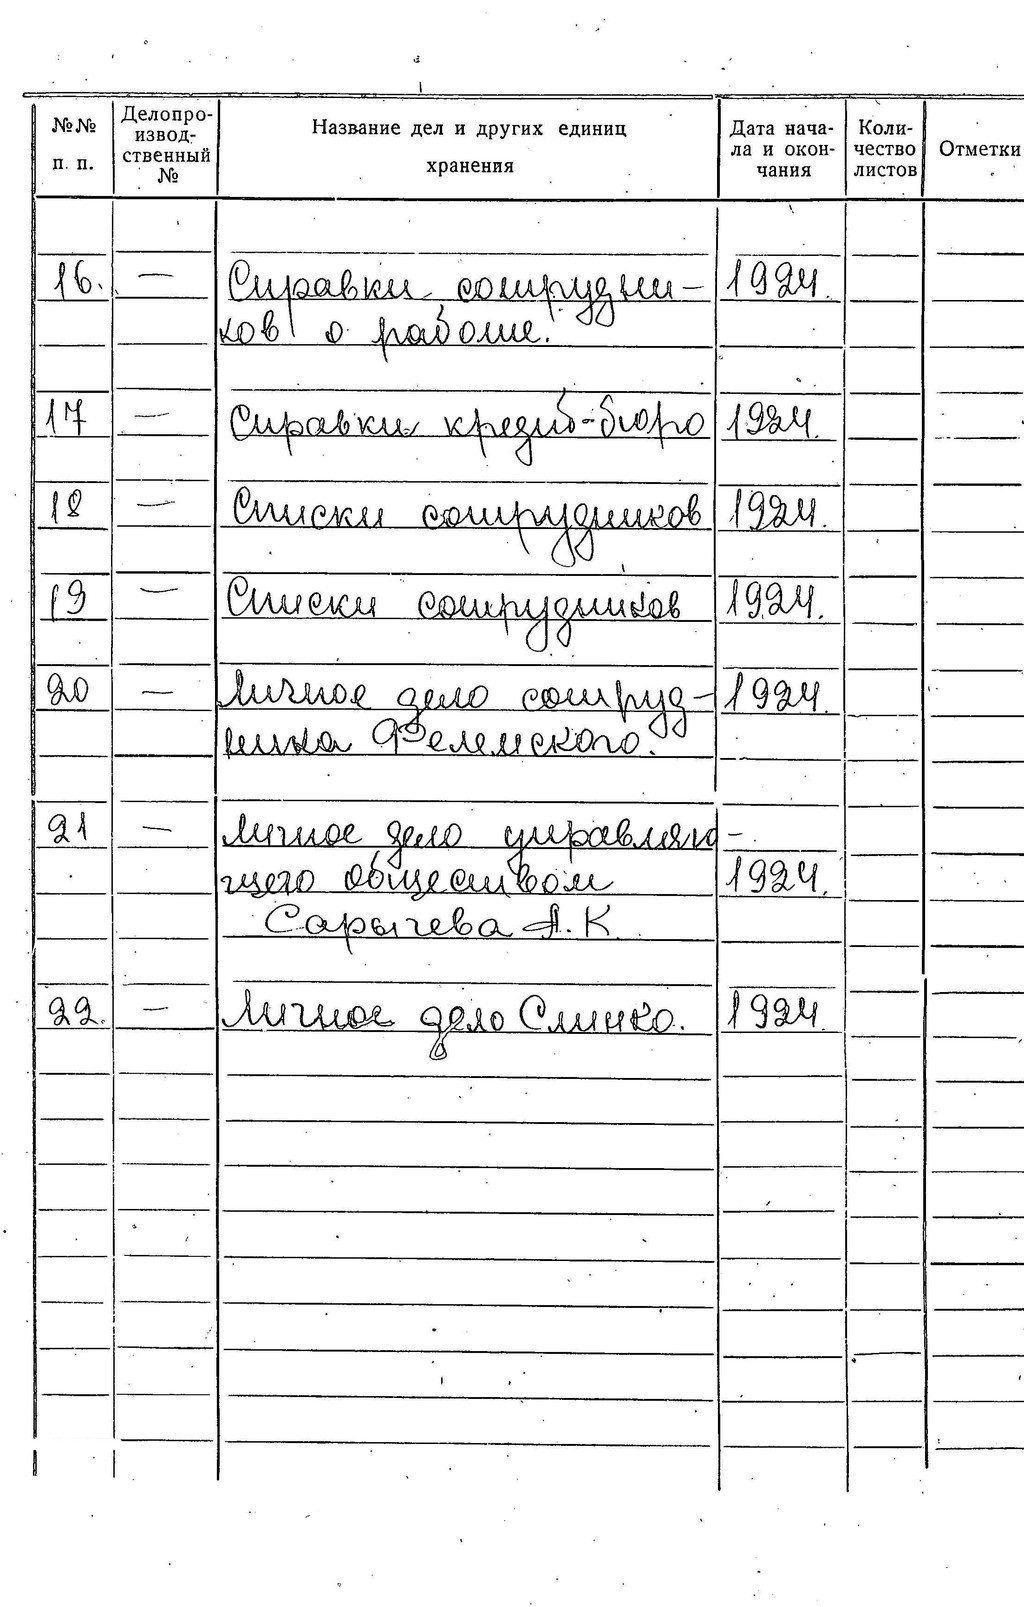 №№ п. п. Делопроизвод-ственный № Название дел и других единиц хранения Дата начала и окончания Количество листов Отметки
16. — Справки сотрудни- 1924.
ков о работе.
17 — Справки кредит-бюро 1924.
18 — Списки сотрудников 1924.
19 — Списки сотрудников 1924.
20 — Личное дело сотруд- 1924.
ника Фелемского.
21 — Личное дело управляю-
щего обществом 1924.
Сарычева А.К
22. — Личное дело Слинко. 1924.